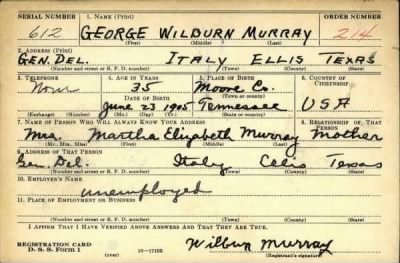 SERIAL NUMBER 1. NAME (Print) ORDER NUMBER
612 GEORGE WILBURN MURRAY 214
(First) (Middle) (Last)
2. ADDRESS (Print)
GEN. DEL. ITALY ELLIS TEXAS
(Number and street or R. F. D. number) (Town) (County) (State)
3. TELEPHONE 4. AGE IN YEARS 5. PLACE OF BIRTH 6. COUNTRY OF CITIZENSHIP
None 35 Moore Co.
DATE OF BIRTH
June 23 1905 Tennessee USA
(Exchange) (Number) (Mo.) (Day) (Yr.) (State or country)
7. NAME OF PERSON WHO WILL ALWAYS KNOW YOUR ADDRESS 8. RELATIONSHIP OF THAT PERSON
Mrs. Martha Elizabeth Murray Mother
(Mr., Mrs., Miss) (First) (Middle) (Last)
9. ADDRESS OF THAT PERSON
Gen. Del. Italy Ellis Texas
(Number and street or R. F. D. number) (Town) (County) (State)
10. EMPLOYER'S NAME
unemployed
11. PLACE OF EMPLOYMENT OR BUSINESS
(Number and street or R. F. D. number) (Town) (County) (State)
I AFFIRM THAT I HAVE VERIFIED ABOVE ANSWERS AND THAT THEY ARE TRUE.
REGISTRATION CARD
D. S. S. Form 1 16-17105 Wilburn Murray
(Registrant's signature)